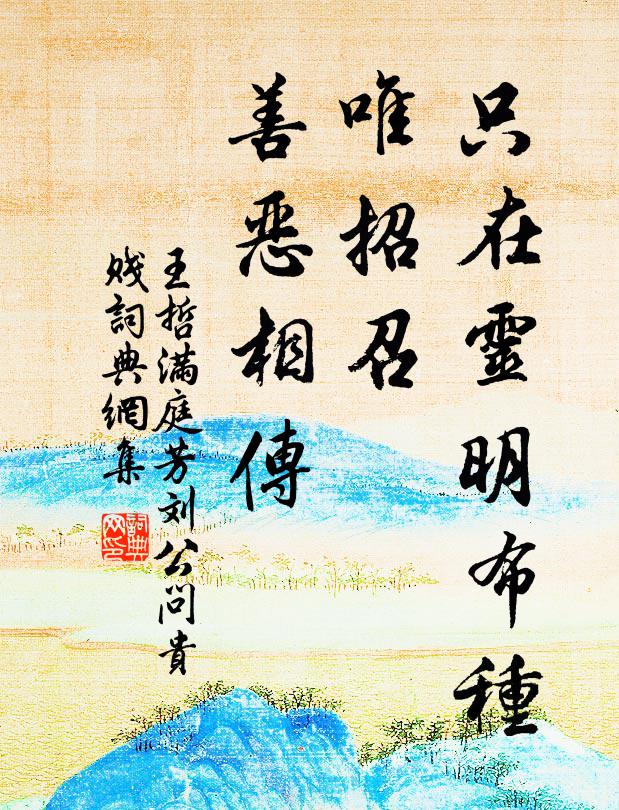 只在靈明布種
唯招召
善惡相傳
王哲满庭芳刘公問貴
賤詞典網集
詞典
网印